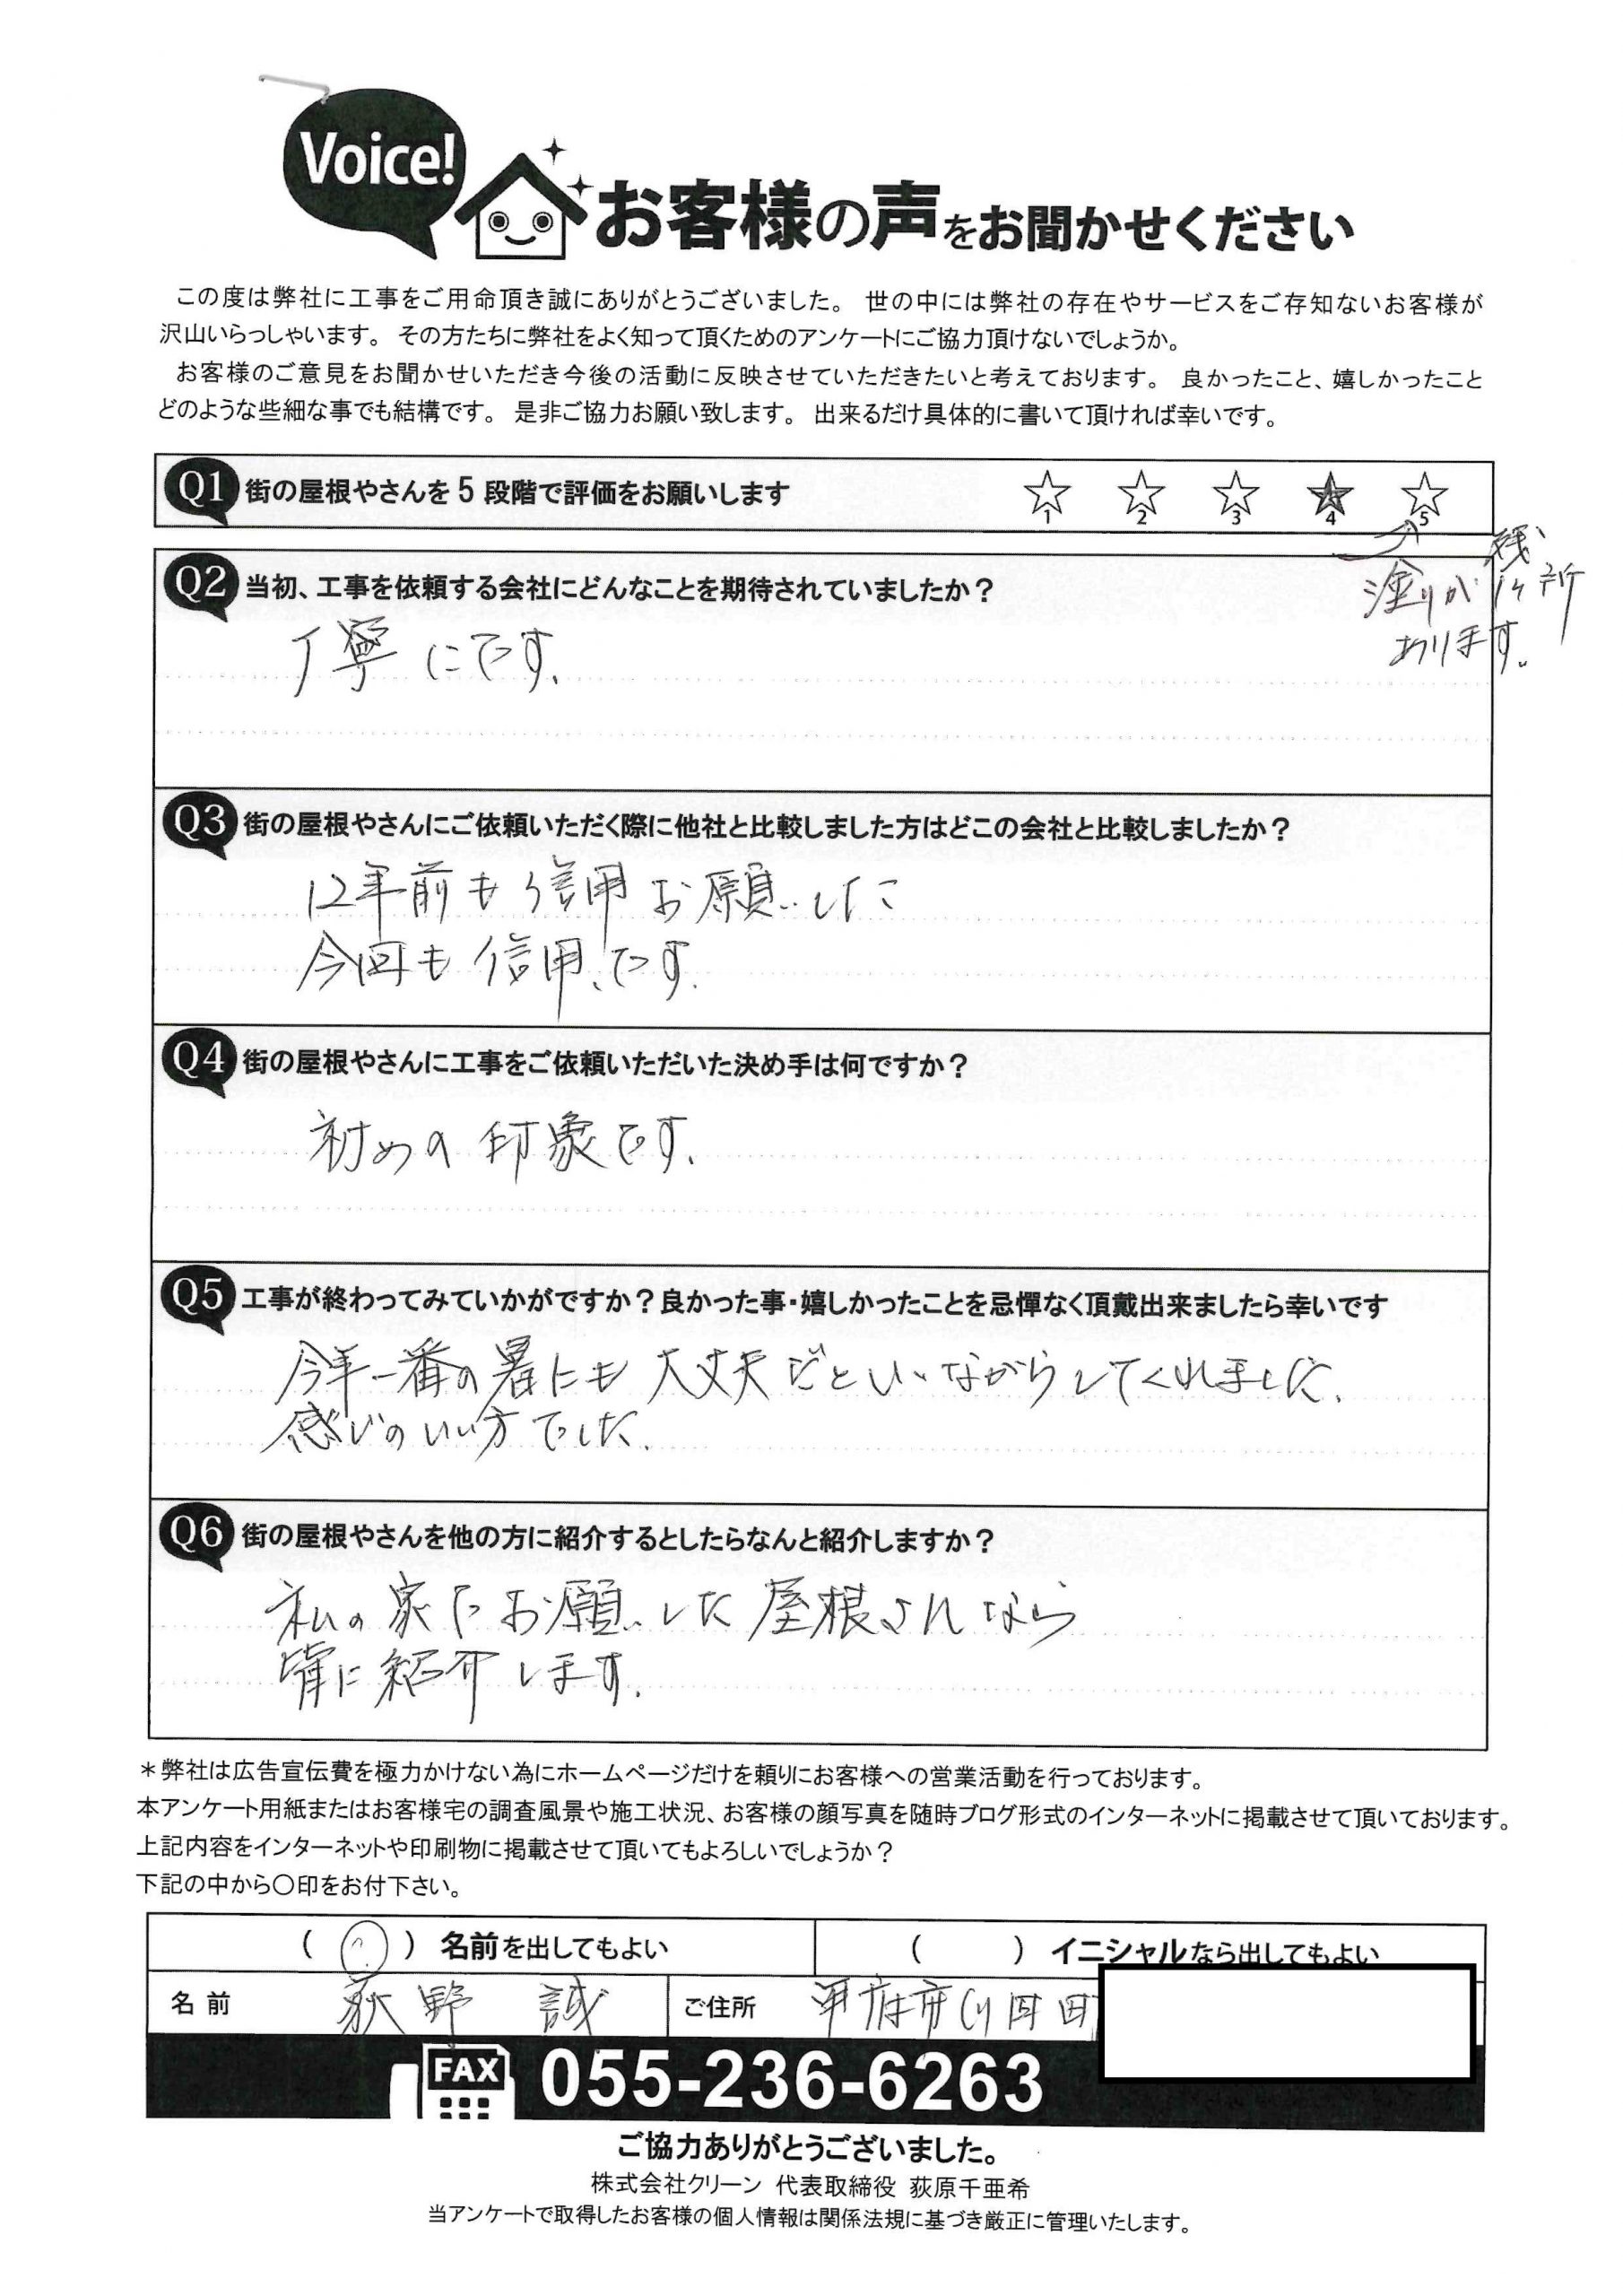 Voice!
お客様の声をお聞かせください
この度は弊社に工事をご用命頂き誠にありがとうございました。 世の中には弊社の存在やサービスをご存知ないお客様が
沢山いらっしゃいます。 その方たちに弊社をよく知って頂くためのアンケートにご協力頂けないでしょうか。
お客様のご意見をお聞かせいただき今後の活動に反映させていただきたいと考えております。 良かったこと、嬉しかったこと
どのような些細な事でも結構です。 是非ご協力お願い致します。 出来るだけ具体的に書いて頂ければ幸いです。
Q1 街の屋根やさんを5段階で評価をお願いします
1 2 3 4 5
残
塗りが
あります。
Q2 当初、工事を依頼する会社にどんなことを期待されていましたか?
丁寧にです。
Q3 街の屋根やさんにご依頼いただく際に他社と比較しました方はどこの会社と比較しましたか?
12年前も信用お願いした
今回も信用です。
Q4 街の屋根やさんに工事をご依頼いただいた決め手は何ですか?
初めの印象です。
Q5 工事が終わってみていかがですか?良かった事・嬉しかったことを忌憚なく頂戴出来ましたら幸いです
今年一番の暑にも大丈夫だといいながらしてくれました。
感じのいい方でした。
Q6 街の屋根やさんを他の方に紹介するとしたらなんと紹介しますか?
私の家でお願いした屋根さんなら
皆に紹介します。
*弊社は広告宣伝費を極力かけない為にホームページだけを頼りにお客様への営業活動を行っております。
本アンケート用紙またはお客様宅の調査風景や施工状況、お客様の顔写真を随時ブログ形式のインターネットに掲載させて頂いております。
上記内容をインターネットや印刷物に掲載させて頂いてもよろしいでしょうか?
下記の中から〇印をお付下さい。
( ) 名前を出してもよい ( ) イニシャルなら出してもよい
名前 荻野 誠 ご住所 甲府市
FAX 055-236-6263
ご協力ありがとうございました。
株式会社クリーン 代表取締役 荻原千亜希
当アンケートで取得したお客様の個人情報は関係法規に基づき厳正に管理いたします。